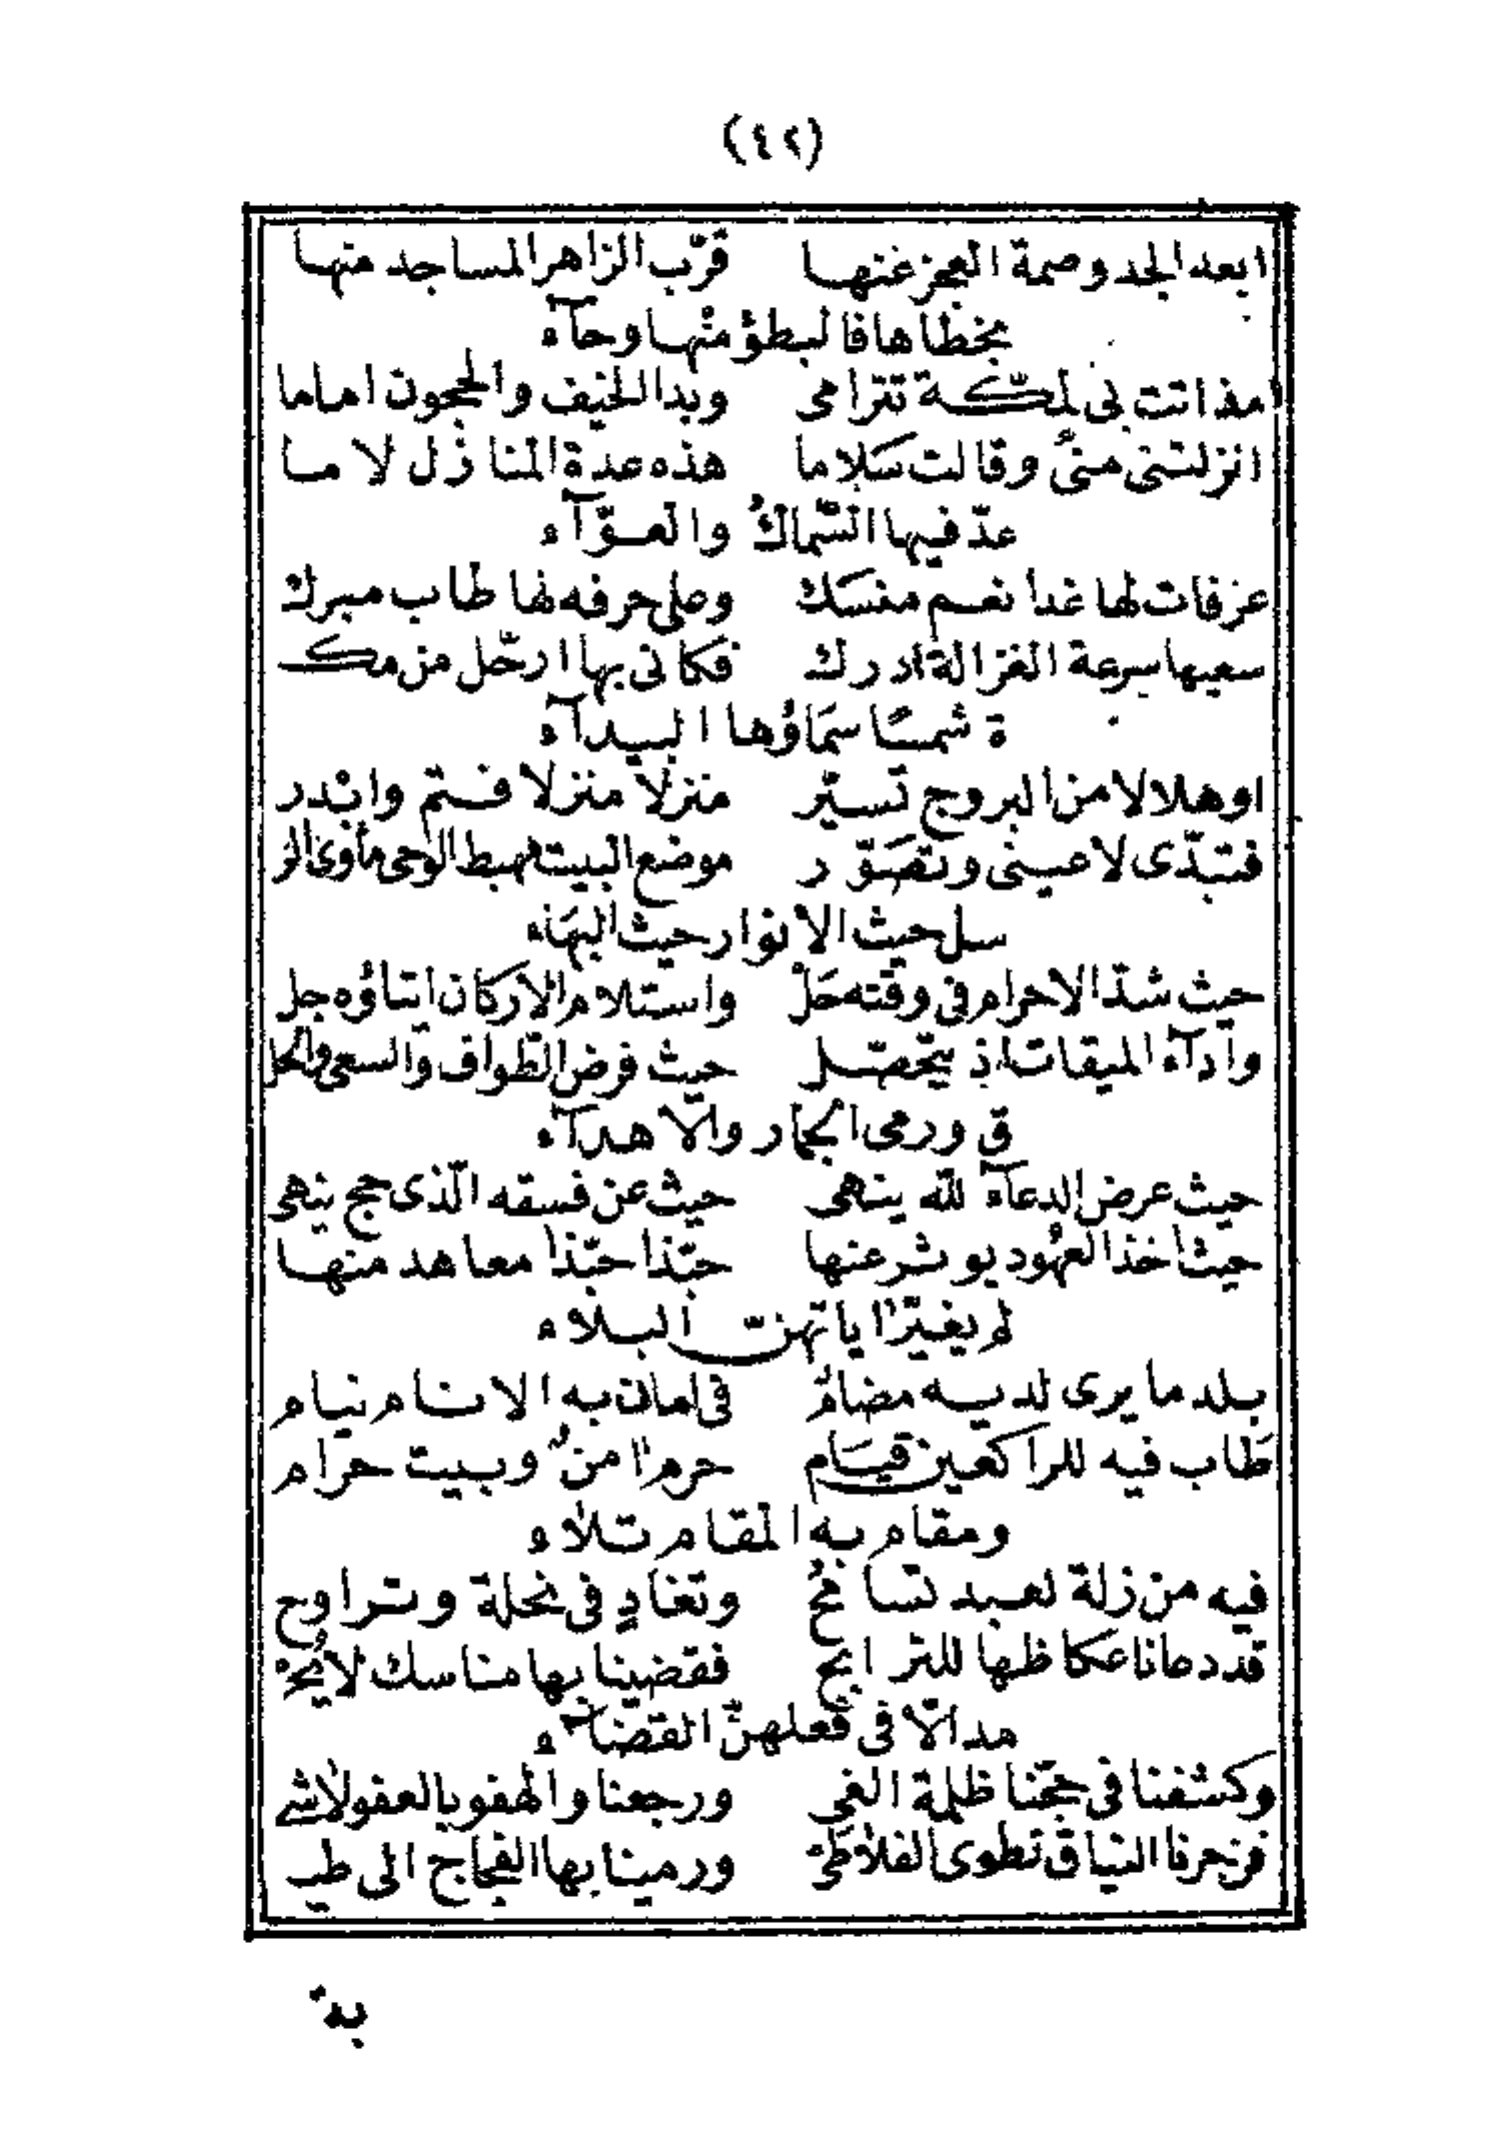 (٤٢)
ابعد الجد وصمة العجز عنها قرّب الزاهر المساجد منها
بخطاها فالبطؤ منها وحآء
مذ اتت بى لمكّة تترامى وبدا الخيف والحجون اماما
انزلتنى منىً وقالت سلاما هذه عدة المنازل لا ما
عدّ فيها السّماكُ والعوّآء
عرفات لها غدا نعم منسك وعلى حرفه لها طاب مبرك
سعيها سرعة الغزالة ادرك فكانى بها ارحّل من مكـ
ة شمسًا سماؤها البيدآء
او هلالا من البروج تسيّر منزلا منزلا فتم وابْدر
فتبدّى لاعينى وتصَوّر موضع البيت مهبط الوحى مأوى الر
سل حيث الانوار حيث البهَاء
حيث شدّ الاحرام فى وقته حَلْ واستلام الاركان ايتاؤه جل
وآدآء الميقات اذ يتحصّل حيث فرض الطّواف والسعى والحل
ق ورمى الجمار والاهدآء
حيث عرض الدعآء لله ينهى حيث عن فسقه الّذى حج ينهى
حيث اخذ العهُود يوثر عنها حبّذا حبّذا معاهد منها
لم يغيّر اياتهنّ البلاء
بلد ما يرى لديه مضامُ فى امان به الانام نيام
طاب فيه للراكعين قيَام حرم امنُ وبيت حرام
ومقام به المقام تلاء
فيه من زلة لعبد تسامحُ وتغادٍ فى نحلة وتراوح
قد دعانا عكاظها للترابح فقضينا بها مناسك لا يُحْـ
مد الّا فى فعلهنّ القضآء
وكشفنا فى حجّنا ظلمة الغى ورجعنا والهفو بالعفو لاشى
فزجرنا النياق تطوى الفلا طىْ ورمينا بها الفجاج الى طيـ
بة